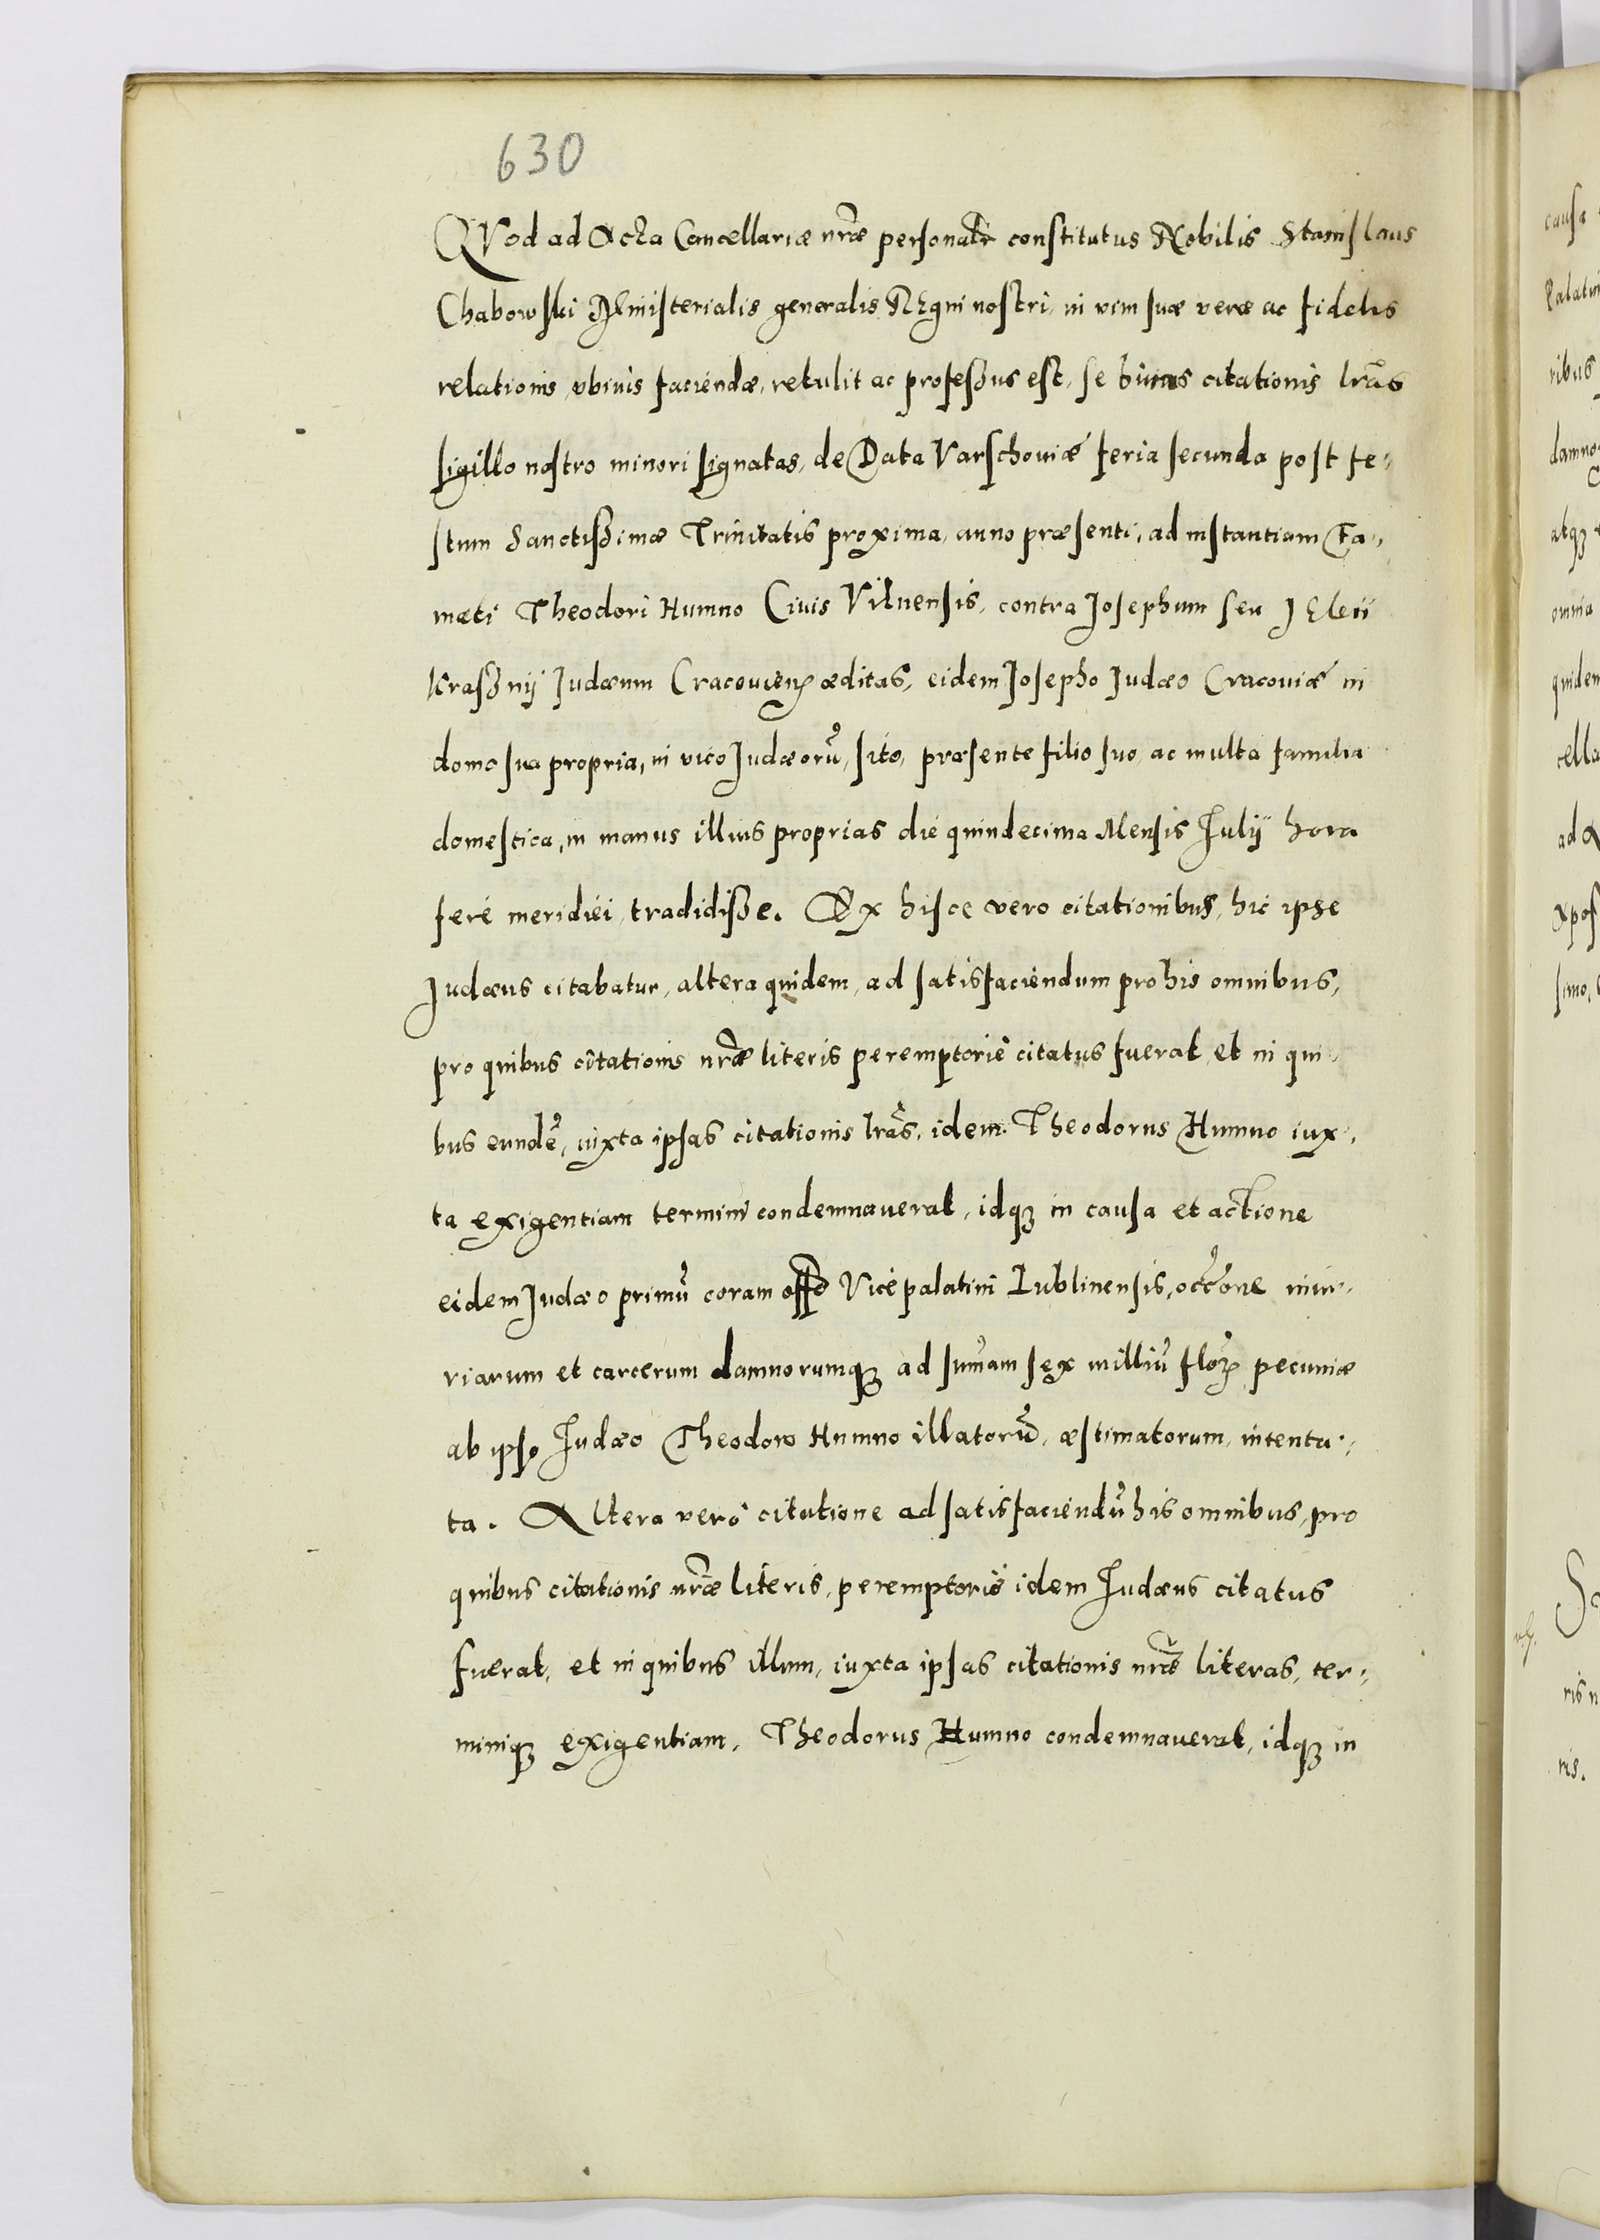 630
QVod ad Acta Cancellariæ nr̃æ personalr̃ constitutus Nobilis Stanislaus
Chabowski Ministerialis generalis REgni nostri, in vim suæ veræ ac fidelis
relationis, vbiuis faciendæ, retulit ac professus est, se binas citationis lr̃as
sigillo nostro minori signatas, de Data Varschouiæ feria secunda post fe-
stum Sanctissimæ Trinitatis proxima, anno præsenti, ad instantiam Fa-
mati Theodori Humno Ciuis Vilnensis, contra Josephum seu
Krassnÿ Judæum Cracouieñ æditas, eidem Josepho Judæo Cracouiæ in
domo sua propria, in vico Judæorũ, sito, præsente filio suo, ac multa familia
domestica, in manus illius proprias die quindecima Mensis Julÿ hora
feré meridiei, tradidisse. Ex hisce vero citationibus, hic ipse
Judæus citabatur, altera quidem, ad satisfaciendum pro his omnibus,
pro quibus citationis nr̃æ literis peremptorié citatus fuerat, et in qui-
bus eundẽ, iuxta ipsas citationis lr̃as, idem Theodorus Humno iux-
ta exigentiam termini condemnauerat, idq3 in causa et actione
eidem Judæo primũ coram offo Vicépalatini Lublinensis, occõne iniu-
riarum et carcerum damnorumq3 ad sum̃am sex milliũ flor pecuniæ
ab ipso Judæo Theodoro Humno illatorũ, æstimatorum, intenta-
ta. Altera veró citatione ad satisfaciendũ his omnibus, pro
quibus citationis nr̃æ literis, peremptorié idem Judæus citatus
fuerat, et in quibus illum, iuxta ipsas citationis nr̃as literas, ter-
miniq3 exigentiam, Theodorus Humno condemnauerat, idq3 in